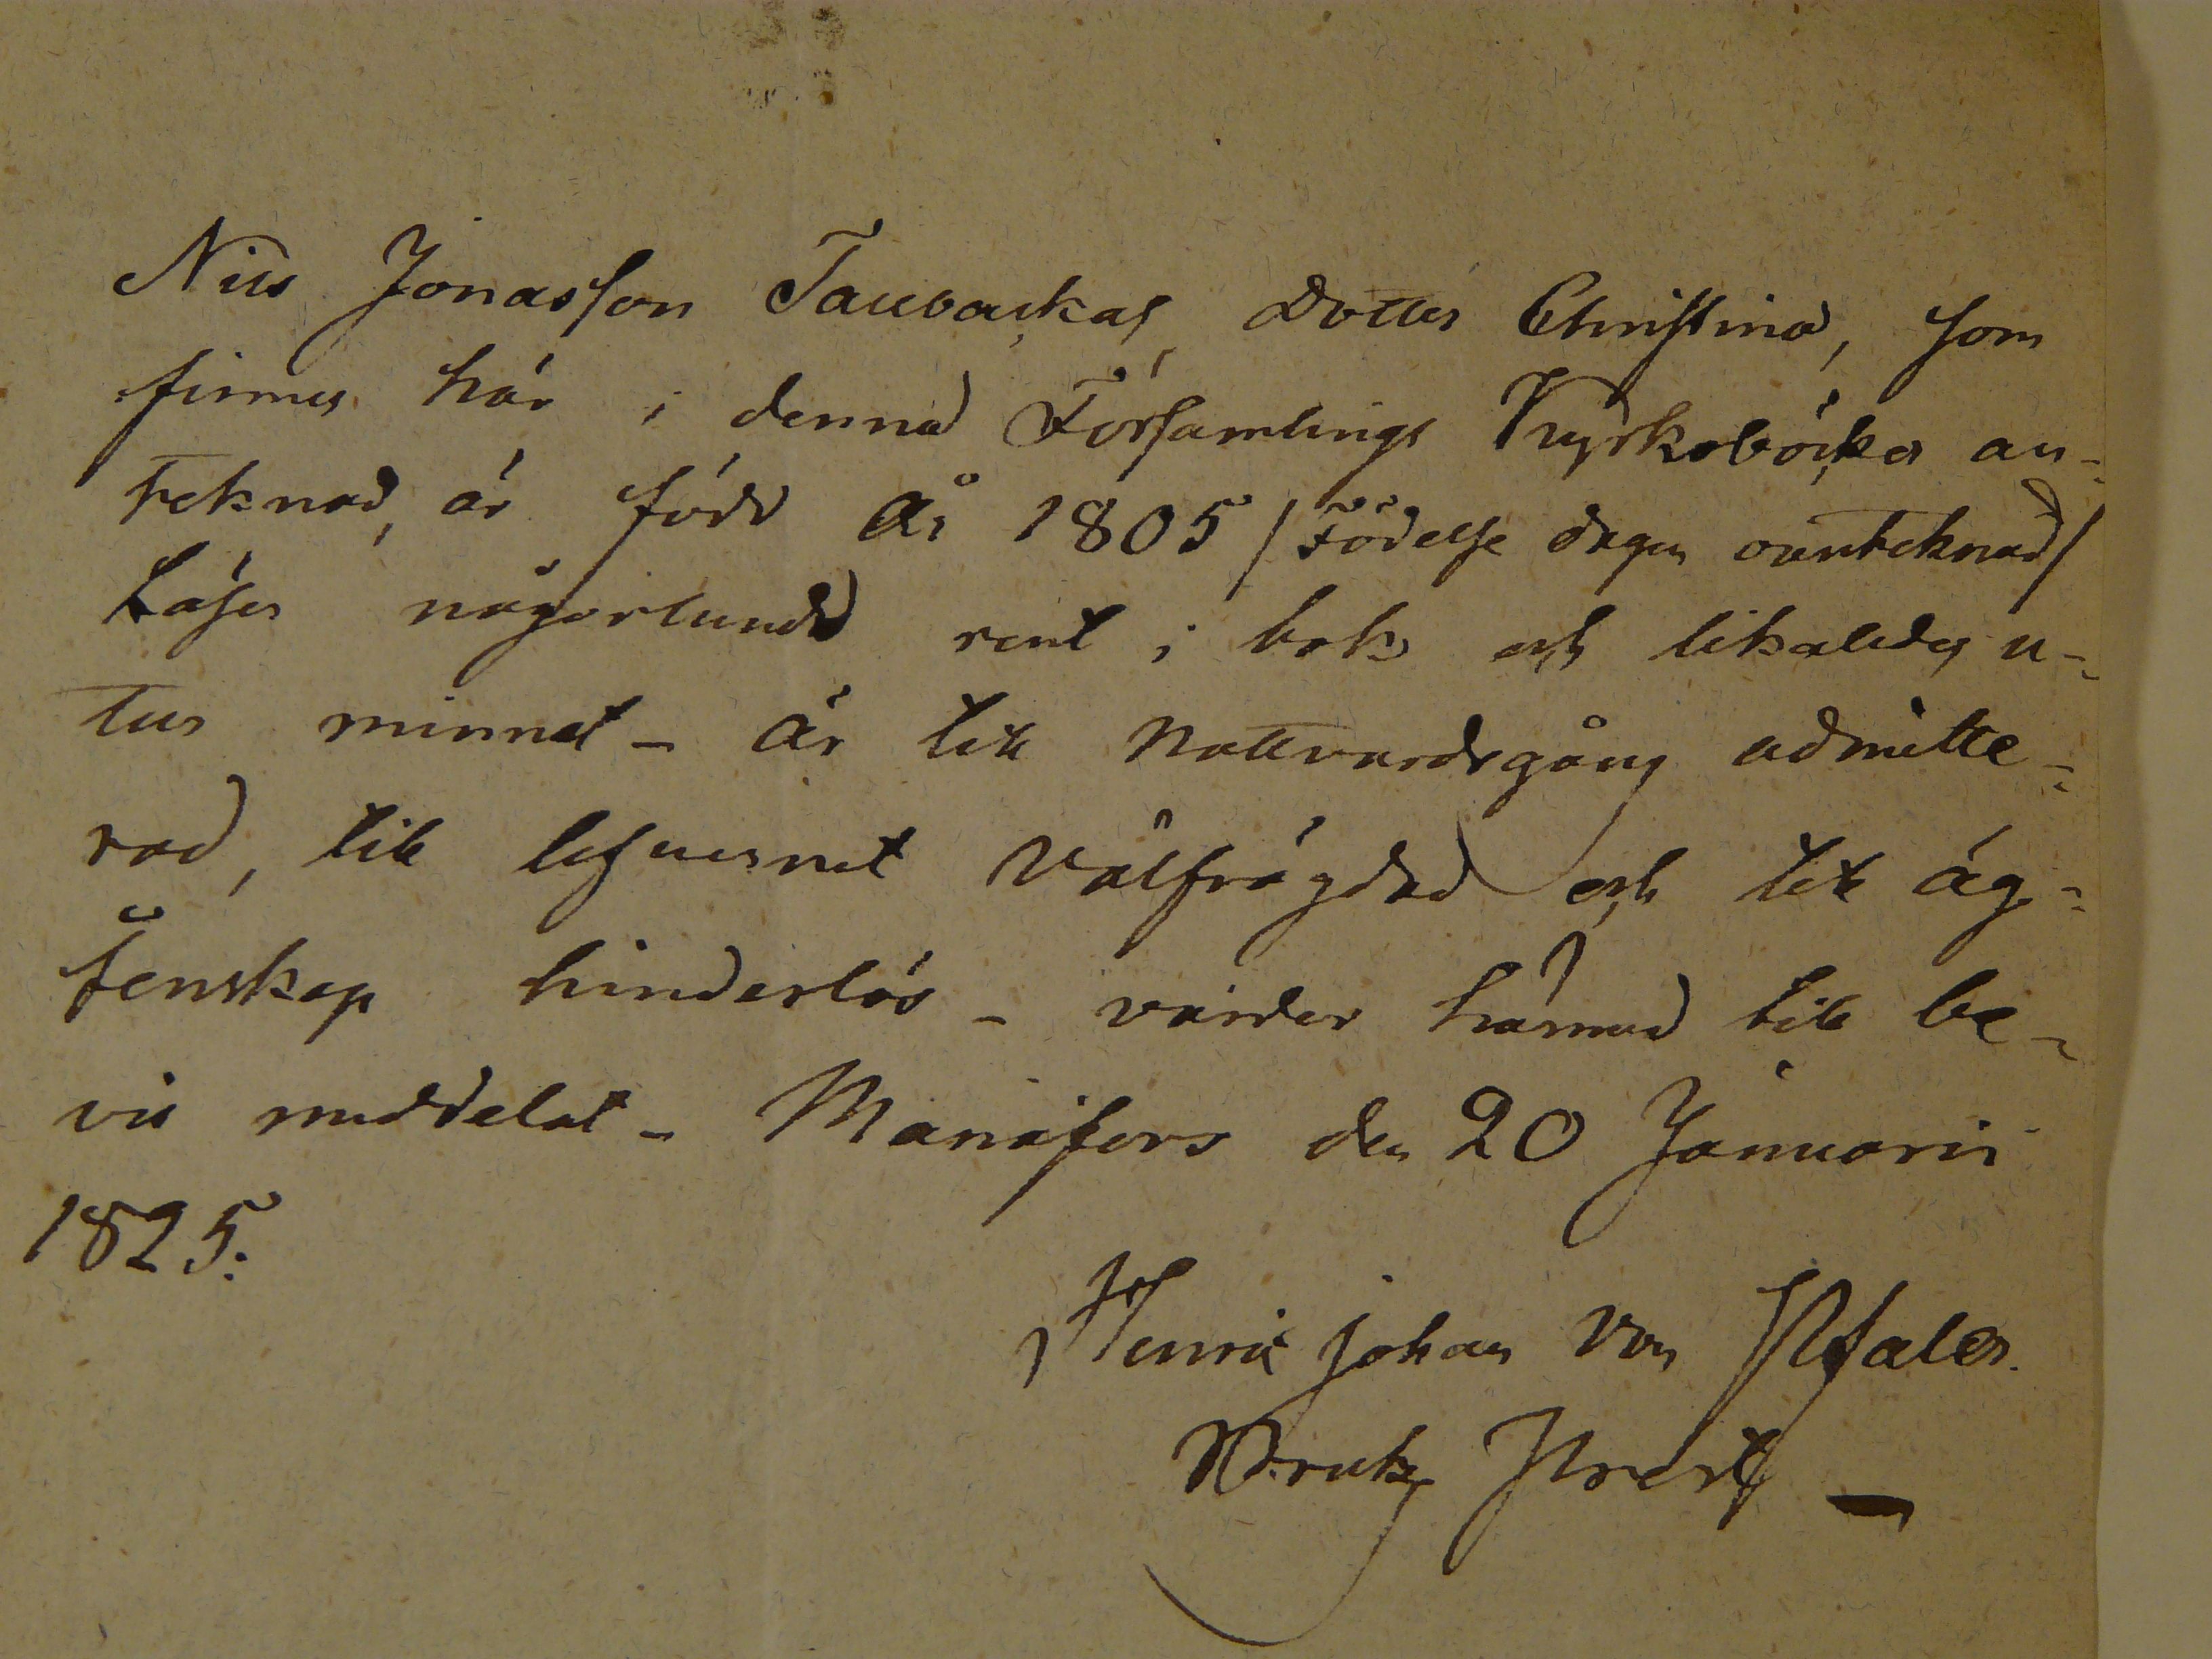 Nils Jonasson Taubackas Dotter Christina, som
finnes här i denna Församlings Kyrkoböcker an-
teknad, är född År 1805 /Födelse dagen oanteknad/
Läser någorlunda rent i bok och likaledes u-
tur minnet - är till Nattvardsgång admitte-
rad, till lefvernet välfrägdad och till äg-
tenskap hinderlös - värder härmed till be-
vis meddelat - Manåfors den 20 Januarii
1825.
Henric Johan von Pfaler.
Bruks Prest